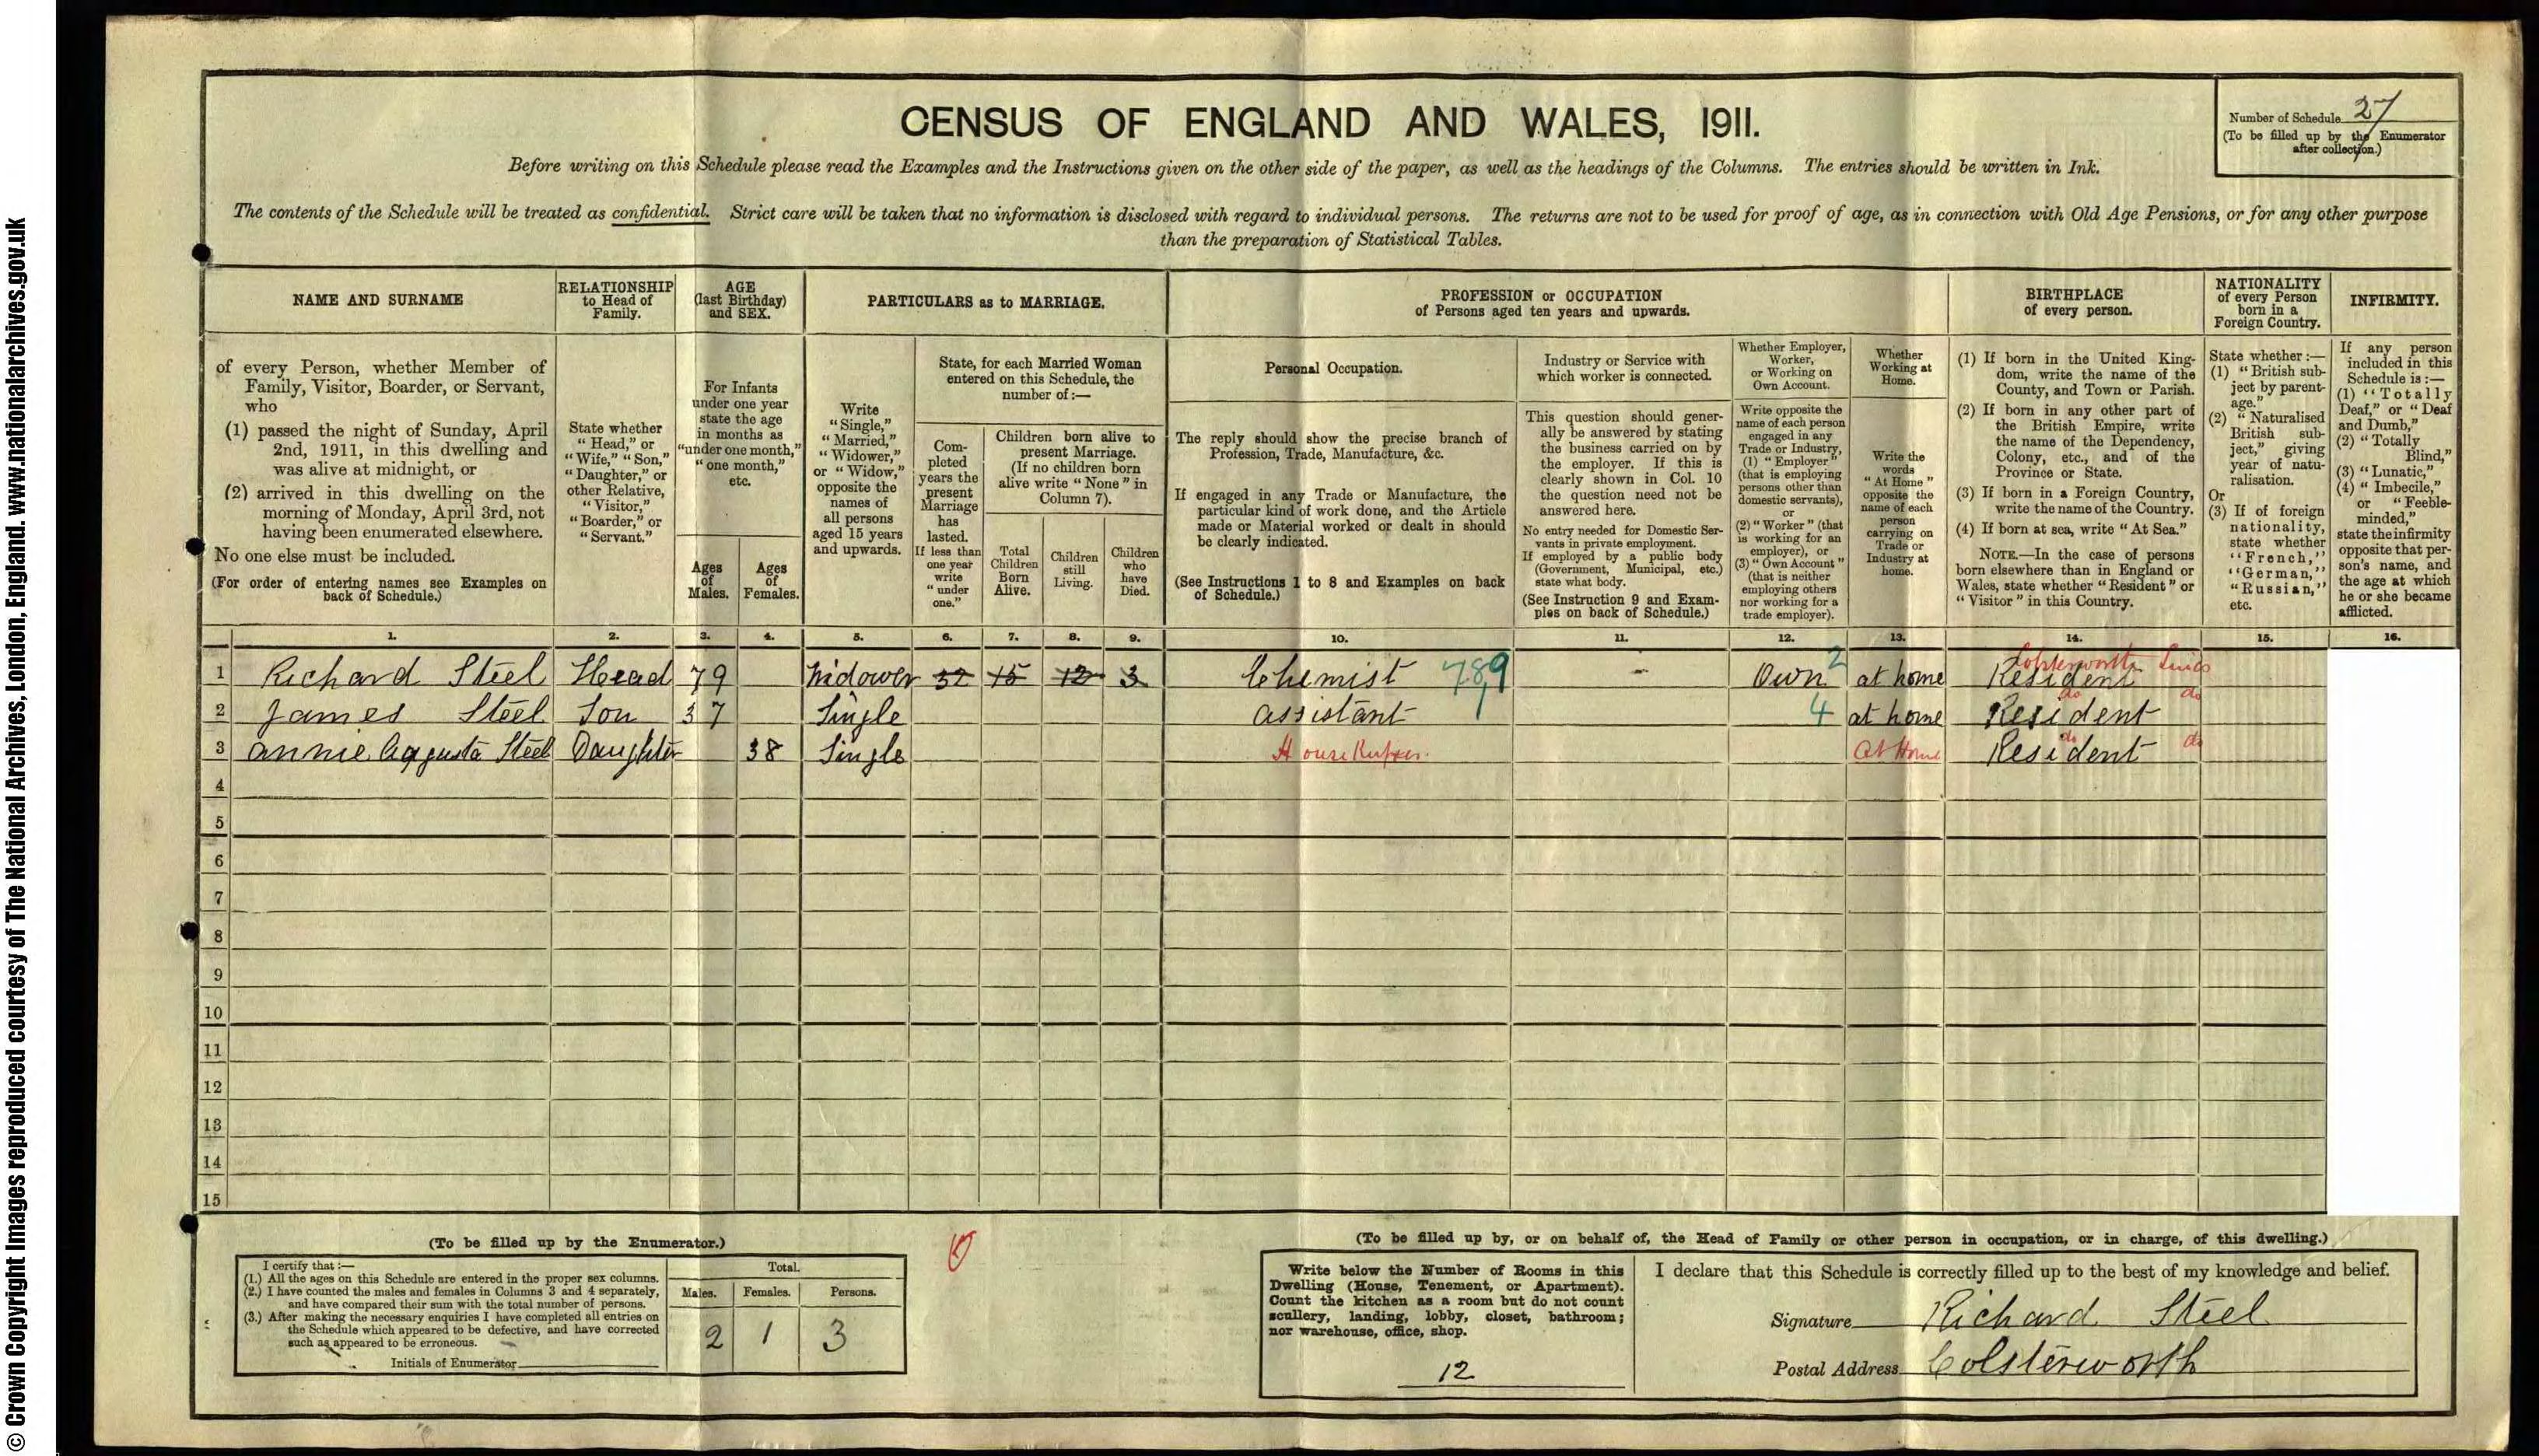 © Crown Copyright Images reproduced courtesy of The National Archives, London, England. www.nationalarchives.gov.uk
CENSUS OF ENGLAND AND WALES, 1911.
Number of Schedule 27
(To be filled up by the Enumerator
after collection.)
Before writing on this Schedule please read the Examples and the Instructions given on the other side of the paper, as well as the headings of the Columns. The entries should be written in Ink.
The contents of the Schedule will be treated as confidential. Strict care will be taken that no information is disclosed with regard to individual persons. The returns are not to be used for proof of age, as in connection with Old Age Pensions, or for any other purpose
than the preparation of Statistical Tables.
NAME AND SURNAME
of every Person, whether Member of
Family, Visitor, Boarder, or Servant,
who
(1) passed the night of Sunday, April
2nd, 1911, in this dwelling and
was alive at midnight, or
(2) arrived in this dwelling on the
morning of Monday, April 3rd, not
having been enumerated elsewhere.
No one else must be included.
(For order of entering names see Examples on
back of Schedule.)
RELATIONSHIP
to Head of
Family.
State whether
"Head," or
"Wife," "Son,"
"Daughter," or
other Relative,
"Visitor,"
"Boarder," or
"Servant."
AGE
(last Birthday)
and SEX.
For Infants
under one year
state the age
in months as
"under one month,"
"one month,"
etc.
Ages
of
Males.
Ages
of
Females.
PARTICULARS as to MARRIAGE.
Write
"Single,"
"Married,"
"Widower,"
or "Widow,"
opposite the
names of
all persons
aged 15 years
and upwards.
State, for each Married Woman
entered on this Schedule, the
number of :—
Com-
pleted
years the
present
Marriage
has
lasted.
If less than
one year
write
"under
one."
Children born alive to
present Marriage.
(If no children born
alive write "None" in
Column 7).
Total
Children
Born
Alive.
Children
still
Living.
Children
who
have
Died.
PROFESSION or OCCUPATION
of Persons aged ten years and upwards.
Personal Occupation.
The reply should show the precise branch of
Profession, Trade, Manufacture, &c.
If engaged in any Trade or Manufacture, the
particular kind of work done, and the Article
made or Material worked or dealt in should
be clearly indicated.
(See Instructions 1 to 8 and Examples on back
of Schedule.)
Industry or Service with
which worker is connected.
This question should gener-
ally be answered by stating
the business carried on by
the employer. If this is
clearly shown in Col. 10
the question need not be
answered here.
No entry needed for Domestic Ser-
vants in private employment.
If employed by a public body
(Government, Municipal, etc.)
state what body.
(See Instruction 9 and Exam-
ples on back of Schedule.)
Whether Employer,
Worker,
or Working on
Own Account.
Write opposite the
name of each person
engaged in any
Trade or Industry,
(1) "Employer"
(that is employing
persons other than
domestic servants),
or
(2) "Worker" (that
is working for an
employer), or
(3) "Own Account"
(that is neither
employing others
nor working for a
trade employer).
Whether
Working at
Home.
Write the
words
"At Home"
opposite the
name of each
person
carrying on
Trade or
Industry at
home.
BIRTHPLACE
of every person.
(1) If born in the United King-
dom, write the name of the
County, and Town or Parish.
(2) If born in any other part of
the British Empire, write
the name of the Dependency,
Colony, etc., and of the
Province or State.
(3) If born in a Foreign Country,
write the name of the Country.
(4) If born at sea, write "At Sea."
NOTE.—In the case of persons
born elsewhere than in England or
Wales, state whether "Resident" or
"Visitor" in this Country.
NATIONALITY
of every Person
born in a
Foreign Country.
State whether :—
(1) "British sub-
ject by parent-
age."
(2) "Naturalised
British sub-
ject," giving
year of natu-
ralisation.
Or
(3) If of foreign
nationality,
state whether
"French,"
"German,"
"Russian,"
etc.
INFIRMITY.
If any person
included in this
Schedule is :—
(1) "Totally
Deaf," or "Deaf
and Dumb,"
(2) "Totally
Blind,"
(3) "Lunatic,"
(4) "Imbecile,"
or "Feeble-
minded,"
state the infirmity
opposite that per-
son's name, and
the age at which
he or she became
afflicted.
1. 2. 3. 4. 5. 6. 7. 8. 9. 10. 11. 12. 13. 14. 15. 16.
Colsterworth Lincs
1 Richard Steel Head 79 Widower 32 15 12 3 Chemist 789 - Own 2 at home Resident
do do
2 James Steel Son 37 Single assistant 1 4 at home Resident
do do
3 annie Augusta Steel Daughter 38 Single House Keeper. At Home Resident
4
5
6
7
8
9
10
11
12
13
14
15
(To be filled up by the Enumerator.)
I certify that :—
(1.) All the ages on this Schedule are entered in the proper sex columns.
(2.) I have counted the males and females in Columns 3 and 4 separately,
and have compared their sum with the total number of persons.
(3.) After making the necessary enquiries I have completed all entries on
the Schedule which appeared to be defective, and have corrected
such as appeared to be erroneous.
Initials of Enumerator
Total.
Males. Females. Persons.
2 1 3
(To be filled up by, or on behalf of, the Head of Family or other person in occupation, or in charge, of this dwelling.)
Write below the Number of Rooms in this
Dwelling (House, Tenement, or Apartment).
Count the kitchen as a room but do not count
scullery, landing, lobby, closet, bathroom;
nor warehouse, office, shop.
12
I declare that this Schedule is correctly filled up to the best of my knowledge and belief.
Signature Richard Steel
Postal Address Colsterworth